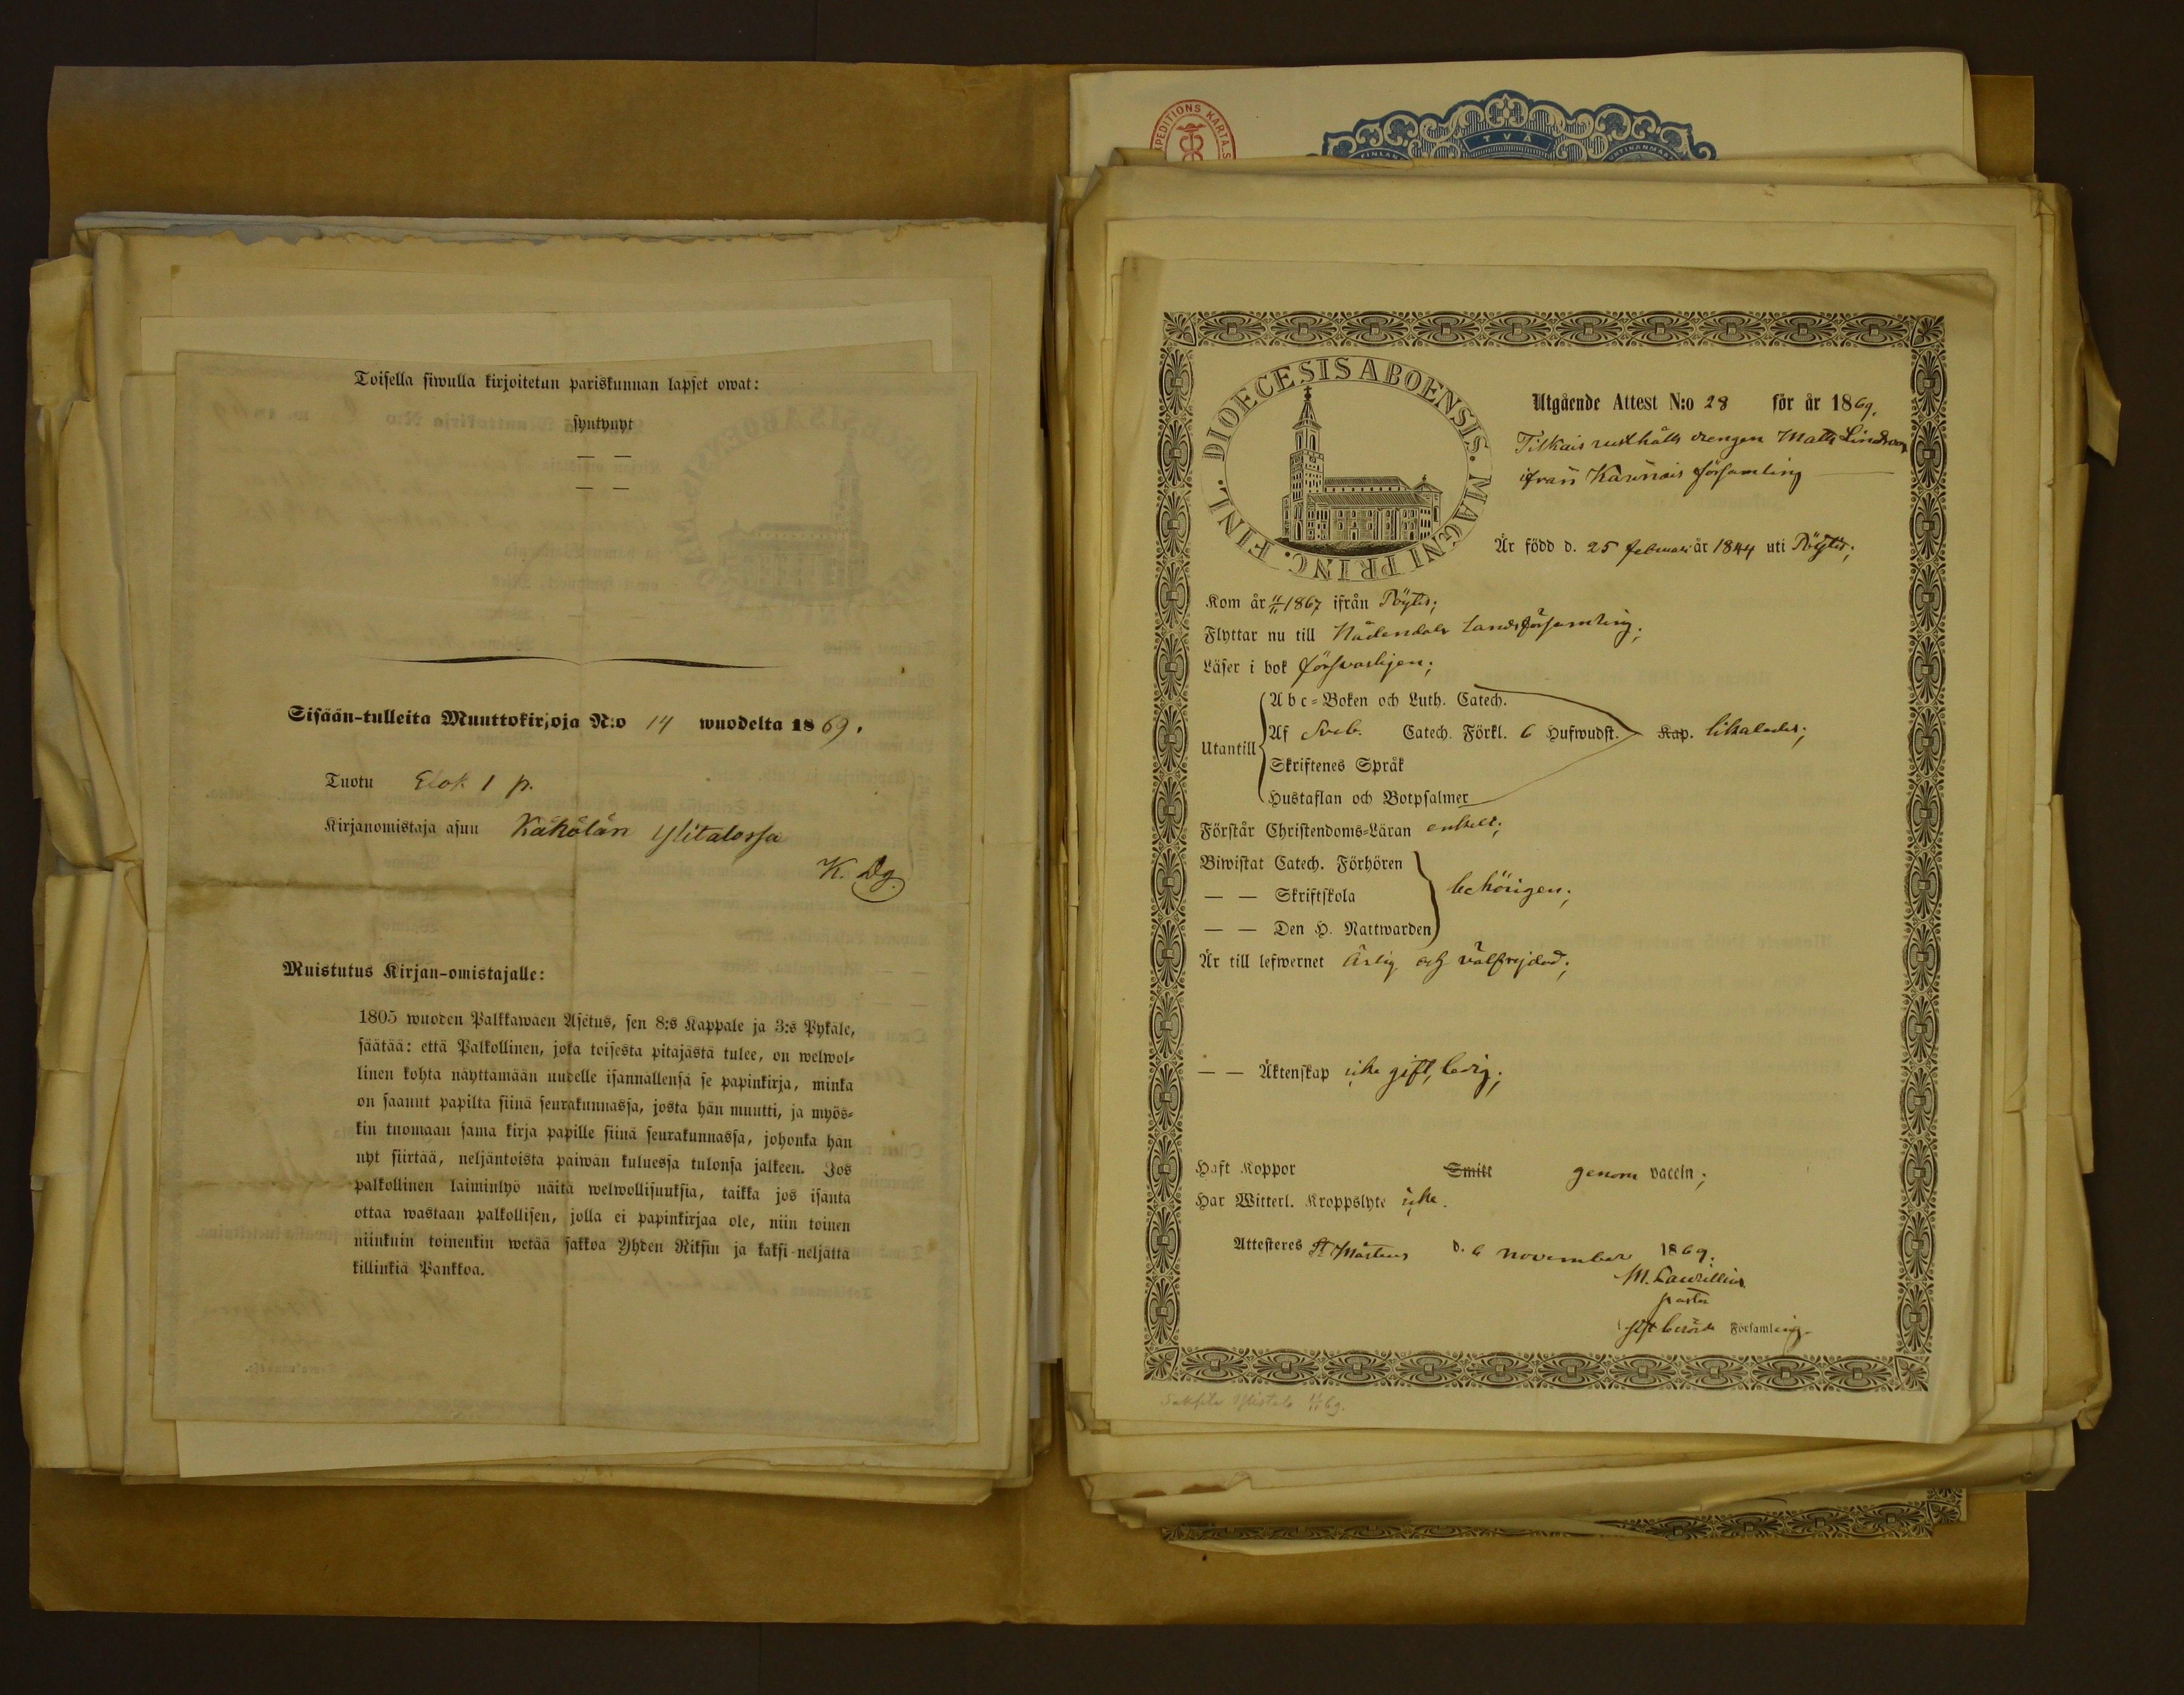 Toisella siwulla kirjoitetun pariskunnan lapset owat:
syntynyt
— —
— —
Sisään-tulleita Muuttokirjoja N:o 14 wuodelta 1869.
Tuotu Elok. 1 p.
Kirjanomistaja asuu Kähölän Ylitalossa
K. Dg.
Muistutus Kirjan-omistajalle:
1805 wuoden Palkkawäen Asetus, sen 8:s Kappale ja 3:s Pykäle,
säätää: että Palkollinen, joka toisesta pitäjästä tulee, on welwol-
linen kohta näyttämään uudelle isännällensä se papinkirja, minkä
on saanut papilta siinä seurakunnassa, josta hän muutti, ja myös-
kin tuomaan sama kirja papille siinä seurakunnassa, johonka hän
nyt siirtää, neljäntoista päiwän kuluessa tulonsa jälkeen. Jos
palkollinen laiminlyö näitä welwollisuuksia, taikka jos isäntä
ottaa wastaan palkollisen, jolla ei papinkirjaa ole, niin toinen
niinkuin toinenkin wetää sakkoa Yhden Riksin ja kaksi neljättä
killinkiä Pankkoa.
EXPEDITIONS KARTA.S
TVÅ
FINLAN
DIOECESIS ABOENSIS. MAGNI PRINC. FINL.
Utgående Attest N:o 28 för år 1869.
Tilkais rusthålls drengen Matts Lindroos
ifrån Karinais församling
Är född d. 25 februari år 1844 uti Pöytis;
Kom år 11/11 1867 ifrån Pöytis;
Flyttar nu till Nådendals Landsförsamling;
Läser i bok försvarligen;
Abc-Boken och Luth. Catech.
Utantill Af Sveb. Catech. Förkl. 6 Hufwudst. Kap. likaledes;
Skriftenes Språk
Hustaflan och Botpsalmer
Förstår Christendoms-Läran enkelt;
Biwistat Catech. Förhören
— — Skriftskola behörigen;
— — Den H. Nattwarden
Är till lefwernet ärlig och välfrejdad;
— — Äktenskap icke gift, ledig;
Haft Koppor Smitt genom vaccin;
Har Witterl. Kroppslyte icke.
Attesteres St Mårtens d. 6 november 1869.
M. Laurellius
pastor
Församling.
Ylistalo